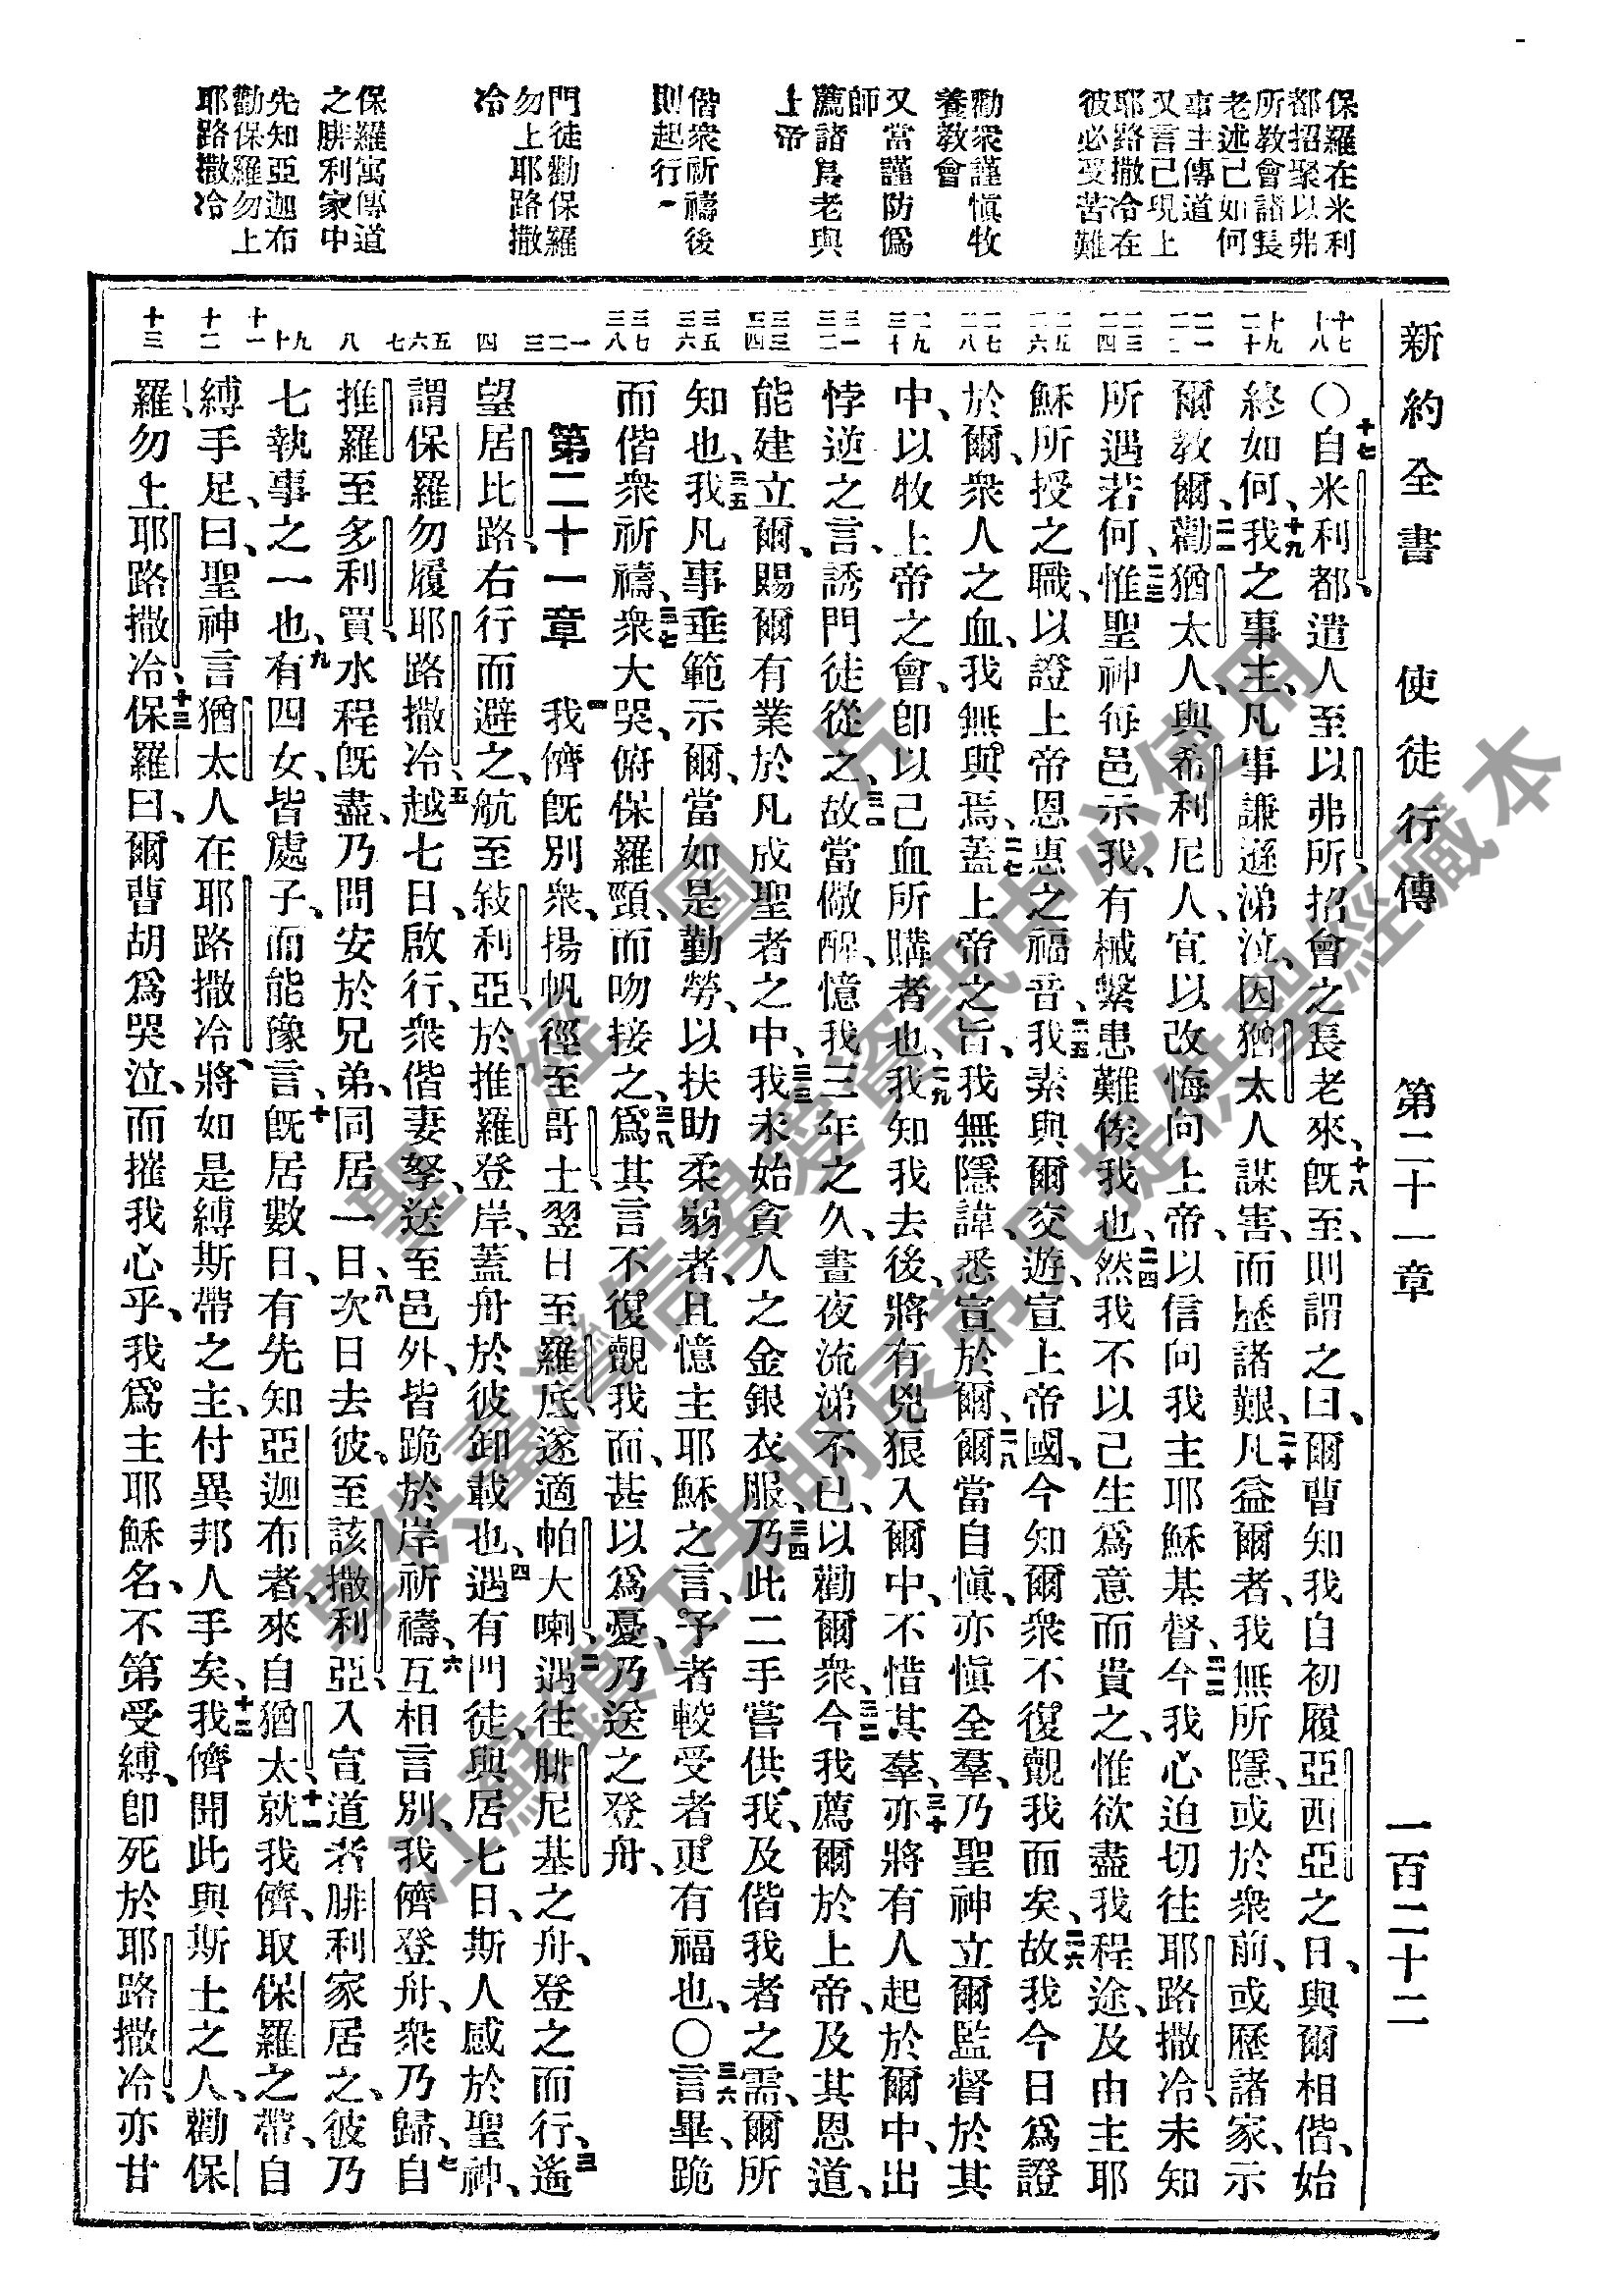 新約全書 使徒行傳 第二十一章 一百二十二
保羅在米利
都招聚以弗
所教會諸長
老述己如何
事主傳道
又言己現上
耶路撒冷在
彼必受苦難
勸眾謹愼牧
養教會
又當謹防僞
師
薦諸長老與
上帝
偕眾祈禱後
則起行
門徒勸保羅
勿上耶路撒
冷
保羅寓傳道
之腓利家中
先知亞迦布
勸保羅勿上
耶路撒冷
十七 十八
十九 二十
二一 二二
二三 二四
二五 二六
二七 二八
二九 三十
三一 三二
三三 三四
三五 三六
三七 三八
一 二 三
四
五 六 七
八
九 十
十一
十二
十三
〇十七自米利都遣人至以弗所、招會之長老來、十八旣至、則謂之曰、爾曹知我自初履亞西亞之日、與爾相偕、始
終如何、十九我之事主、凡事謙遜涕泣、因猶太人謀害、而歷諸艱、二十凡益爾者、我無所隱、或於衆前、或歷諸家、示
爾教爾、二一勸猶太人、與希利尼人、宜以改悔向上帝、以信向我主耶穌基督、二二今我心迫切往耶路撒冷、未知
所遇若何、二三惟聖神每邑示我、有械繫患難俟我也、二四然我不以己生爲意而貴之、惟欲盡我程途、及由主耶
穌所授之職、以證上帝恩惠之福音、二五我素與爾交遊、宣上帝國、今知爾衆不復覿我面矣、二六故我今日爲證
於爾、衆人之血、我無與焉、二七蓋上帝之旨、我無隱諱、悉宣於爾、二八爾當自愼、亦愼全羣、乃聖神立爾監督於其
中、以牧上帝之會、卽以己血所購者也、二九我知我去後、將有兇狼入爾中、不惜其羣、三十亦將有人起於爾中、出
悖逆之言、誘門徒從之、三一故當儆醒、憶我三年之久、晝夜流涕不已、以勸爾衆、三二今我薦爾於上帝、及其恩道、
能建立爾、賜爾有業於凡成聖者之中、三三我未始貪人之金銀衣服、三四乃此二手嘗供我、及偕我者之需、爾所
知也、三五我凡事垂範示爾、當如是勤勞、以扶助柔弱者、且憶主耶穌之言、予者較受者更有福也、〇三六言畢、跪
而偕衆祈禱、三七衆大哭、俯保羅頸、而吻接之、三八爲其言不復覿我面、甚以爲憂、乃送之登舟、
第二十一章 一我儕旣別衆、揚帆徑至哥士、翌日至羅底、遂適帕大喇、二遇往腓尼基之舟、登之而行、三遙
望居比路、右行而避之、航至敍利亞、於推羅登岸、蓋舟於彼卸載也、四遇有門徒、與居七日、斯人感於聖神、
謂保羅勿履耶路撒冷、五越七日、啟行、衆偕妻孥、送至邑外、皆跪於岸祈禱、六互相言別、我儕登舟、衆乃歸、七自
推羅至多利買、水程旣盡、乃問安於兄弟、同居一日、八次日去彼、至該撒利亞、入宣道者腓利家居之、彼乃
七執事之一也、九有四女、皆處子、而能豫言、十旣居數日、有先知亞迦布者、來自猶太、十一就我儕、取保羅之帶、自
縛手足、曰、聖神言猶太人在耶路撒冷、將如是縛斯帶之主、付異邦人手矣、十二我儕聞此與斯土之人、勸保
羅、勿上耶路撒冷、十三保羅曰、爾曹胡爲哭泣、而摧我心乎、我爲主耶穌名、不第受縛、卽死於耶路撒冷、亦甘
聖經圖片
專供臺灣信望愛資訊中心使用
江蘇鎮江朱明辰常見提供聖經藏本